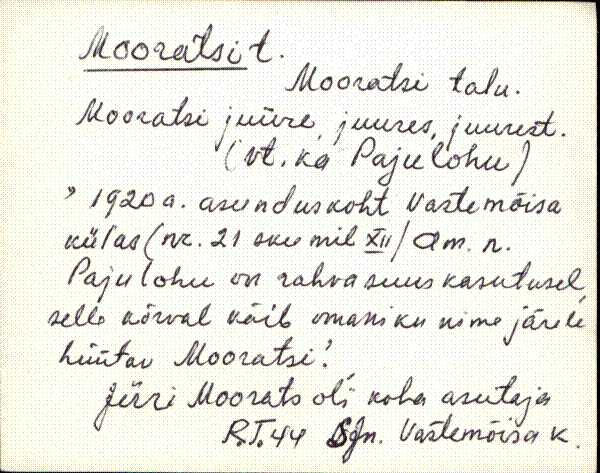 Mooratsi t.
Mooratsi talu.
Mooratsi juure, juures, juurest.
(vt. ka Pajulohu)
" 1920 a. asunduskoht Vastemõisa
külas (nr. 21 skeemil XII) Am. n.
Pajulohu on rahvasuus kasutusel,
selle kõrval käib omaniku nime järele
hüütav Mooratsi!
Jüri Moorats oli koha asutaja
R.T. 44 SJn. Vastemõisa k.